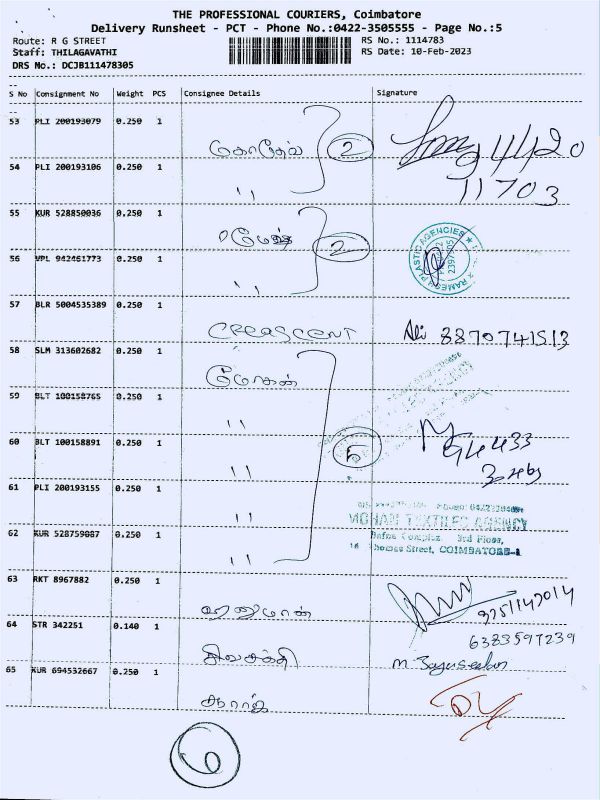 THE PROFESSIONAL COURIERS, Coimbatore
Delivery Runsheet - PCT - Phone No.:0422-3505555 - Page No.:5
Route: R G STREET RS No.: 1114783
Staff: THILAGAVATHI RS Date: 10-Feb-2023
DRS No.: DCJB111478305
S No Consignment No Weight PCS Consignee Details Signature
53 PLI 200193079 0.250 1
2
54 PLI 200193106 0.250 1 " 11703
55 KUR 528850036 0.250 1 ரமேஷ் 2
56 VPL 942461773 0.250 1 "
57 BLR 5004535389 0.250 1 CREASCENT Ali 8870741513
58 SLM 313602682 0.250 1 மோகன்
59 BLT 100158765 0.250 1 "
60 BLT 100158891 0.250 1 " 5
61 PLI 200193155 0.250 1 "
MOHAN TEXTILES AGENCY
62 KUR 528759087 0.250 1 " 3rd Floor,
16 Thomas Street, COIMBATORE-1
63 RKT 8967882 0.250 1 ஹனுமான் 9751147014
64 STR 342251 0.140 1 சிவசக்தி 6383597239
65 KUR 694532667 0.250 1
6